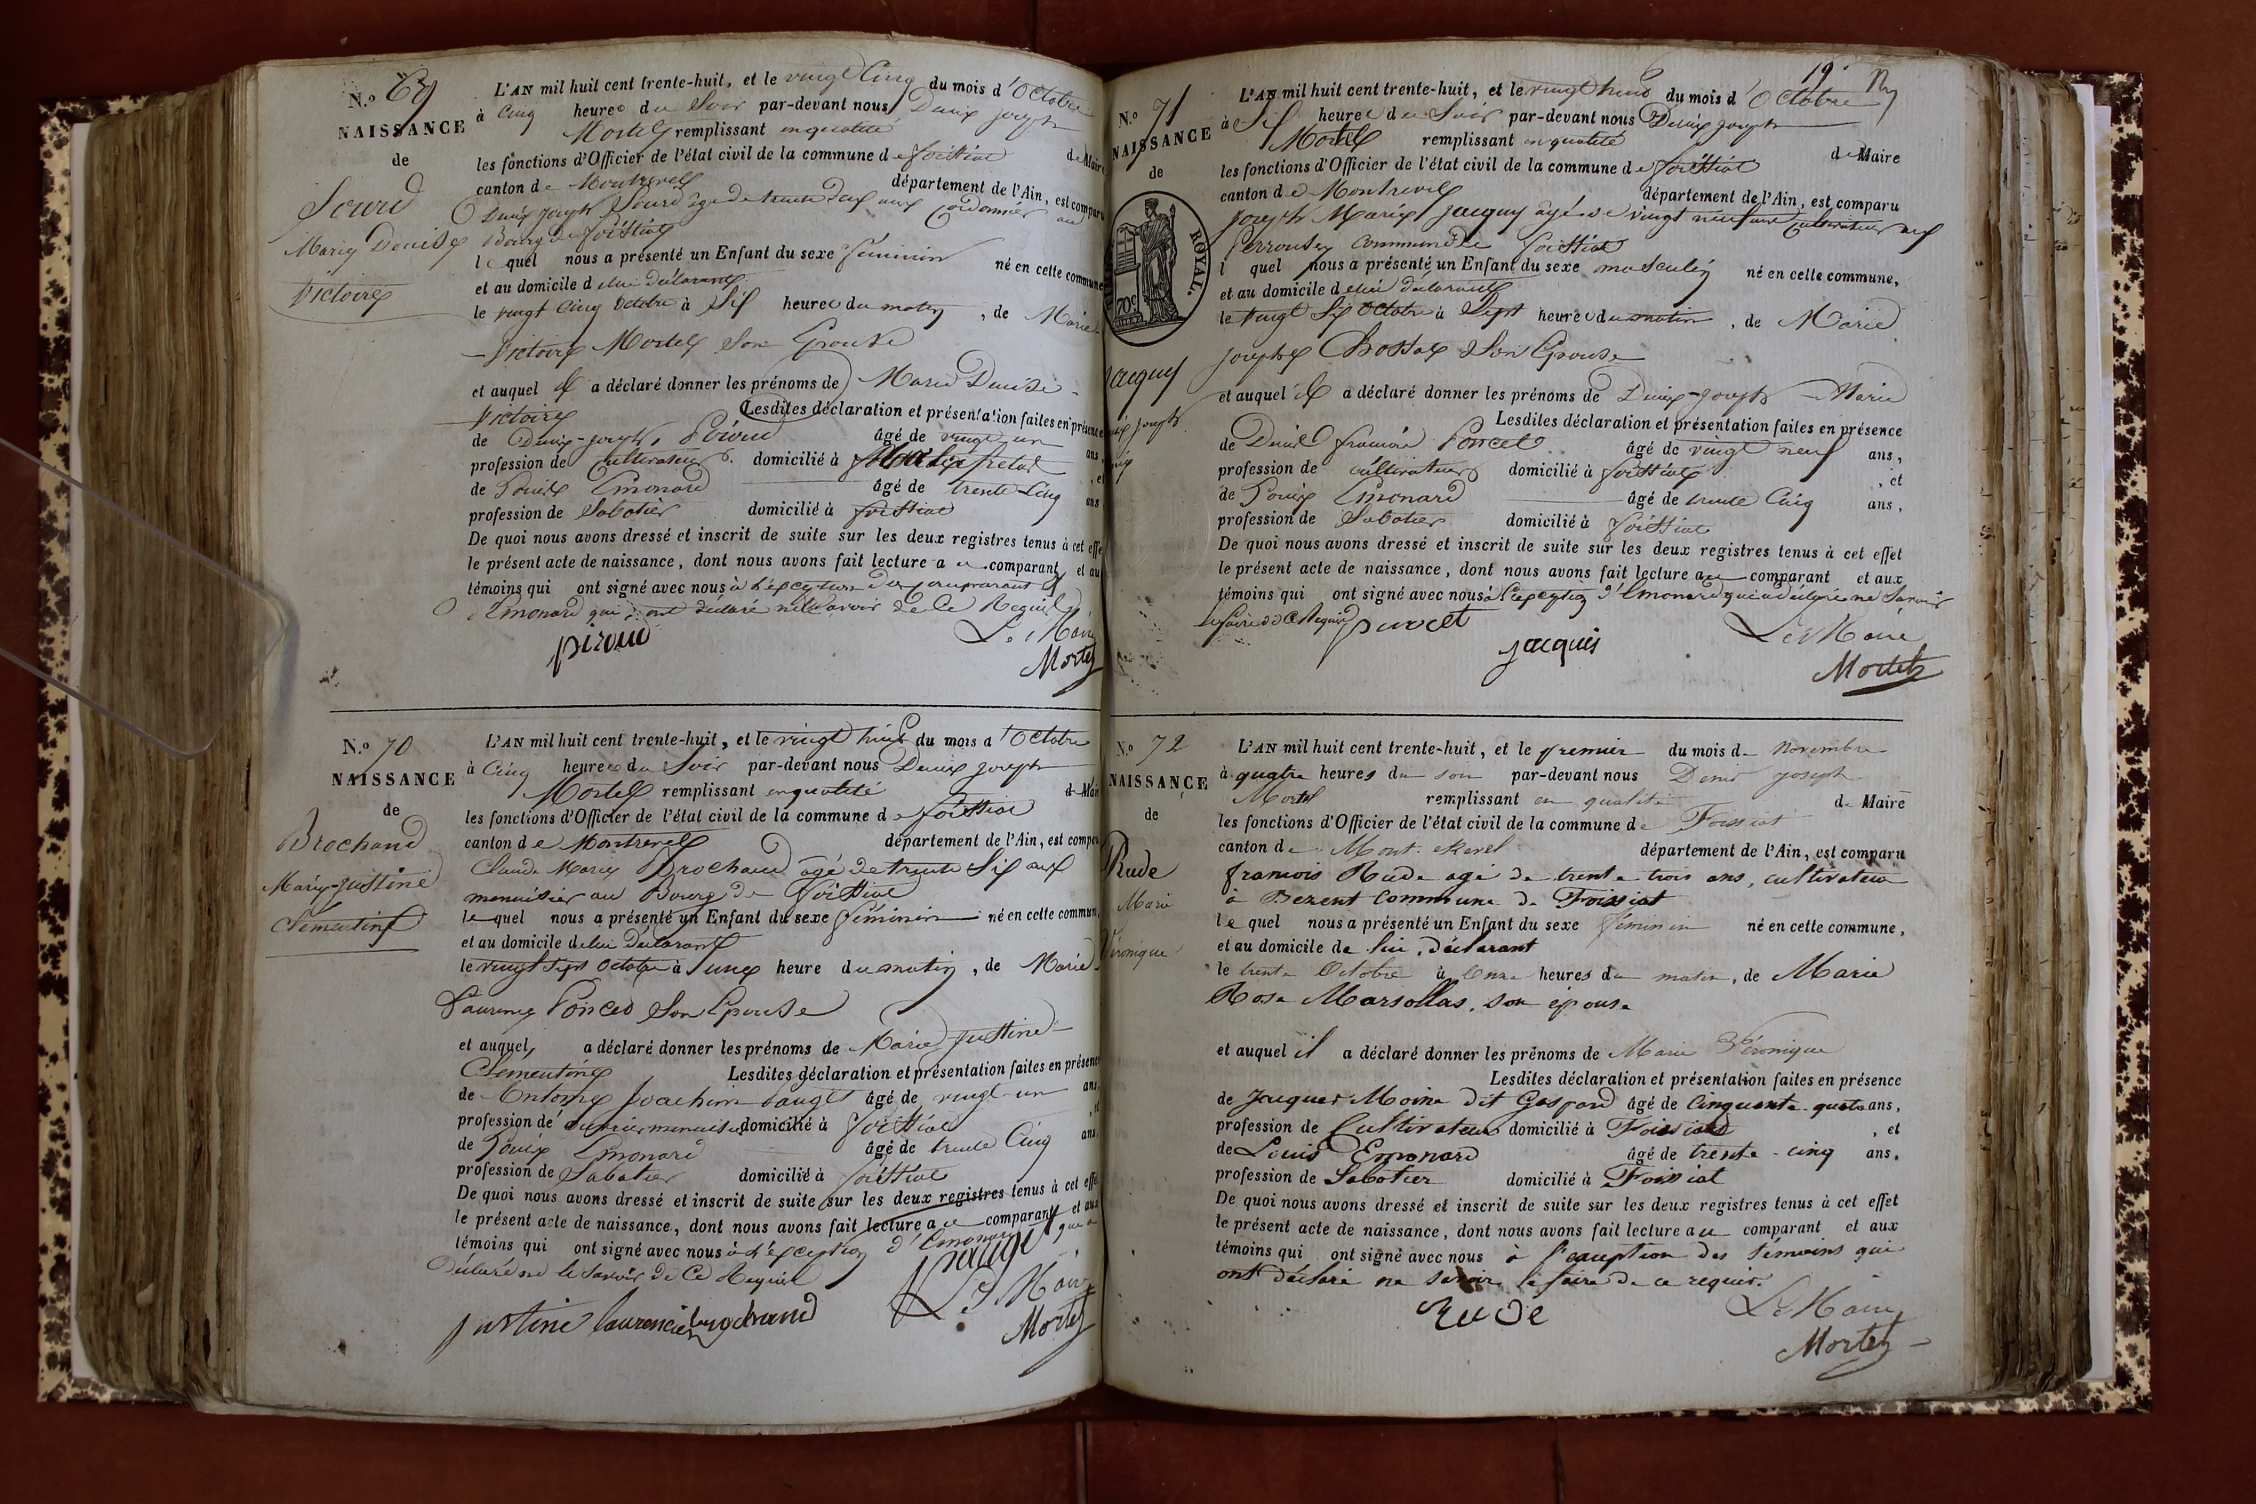 N.º 69
NAISSANCE
de
Sourd
Marie Denise
Victoire
L'AN mil huit cent trente-huit, et le vingt Cinq du mois d'Octobre
à Cinq heures du Soir par-devant nous Denis joseph
Mortel remplissant en qualité de Maire
les fonctions d'Officier de l'état civil de la commune de foissiat
canton de Montrevel département de l'Ain, est comparu
Denis joseph Sourd âgé de trente deux ans Cordonnier au
Bourg de foissiat
lequel nous a présenté un Enfant du sexe féminin né en cette commune
et au domicile de lui déclarant
le vingt Cinq Octobre à Six heures du matin, de Marie
Victoire Mortel Son Epouse
et auquel il a déclaré donner les prénoms de Marie Denise
Victoire Lesdites déclaration et présentation faites en présence
de Denis-joseph Piroud âgé de vingt un ans,
profession de Cultivateur domicilié à , et
de Louis Emonard âgé de trente Cinq ans
profession de Sabotier domicilié à foissiat
De quoi nous avons dressé et inscrit de suite sur les deux registres tenus à cet effet
le présent acte de naissance, dont nous avons fait lecture au comparant et aux
témoins qui ont signé avec nous à l'exception du comparant
Emonard qui ont déclaré ne le Savoir de Ce Requis
piroud
Le Maire
Mortel
N.º 70
NAISSANCE
de
Brochand
Marie-Justine
Clementine
L'AN mil huit cent trente-huit, et le vingt huit du mois d'Octobre
à Cinq heures du Soir par-devant nous Denis joseph
Mortel remplissant en qualité de Maire
les fonctions d'Officier de l'état civil de la commune de foissiat
canton de Montrevel département de l'Ain, est comparu
Claude Marie Brochand âgé de trente Six ans
menuisier au Bourg de foissiat
lequel nous a présenté un Enfant du sexe féminin né en cette commune,
et au domicile de lui déclarant
le vingt Sept Octobre à une heure du matin, de Marie
Laurence Poncet Son Epouse
et auquel, a déclaré donner les prénoms de Marie Justine
Clementine Lesdites déclaration et présentation faites en présence
de Antoine Joachim âgé de vingt-un ans,
profession d'ouvrier menuisier domicilié à foissiat, et
de Louis Emonard âgé de trente Cinq ans,
profession de Sabotier domicilié à foissiat
De quoi nous avons dressé et inscrit de suite sur les deux registres tenus à cet effet
le présent acte de naissance, dont nous avons fait lecture au comparant et aux
témoins qui ont signé avec nous à l'exception d'Emonard qui a
déclaré ne le Savoir de Ce Requis
Le Maire
justine laurencie brochand
Mortel
19
N.º 71
NAISSANCE
de
ROYAL.
70c
jacquis
joseph
L'AN mil huit cent trente-huit, et le vingt huit du mois d'Octobre
à Six heures du Soir par-devant nous Denis joseph
Mortel remplissant en qualité de Maire
les fonctions d'Officier de l'état civil de la commune de foissiat
canton de Montrevel département de l'Ain, est comparu
joseph Marie jacquis âgé de vingt neuf ans Cultivateur
commune de foissiat
l quel nous a présenté un Enfant du sexe masculin né en cette commune,
et au domicile de lui déclarant
le vingt Six Octobre à Sept heures du matin, de Marie
josephe Son Epouse
et auquel il a déclaré donner les prénoms de Denis-joseph Marie
Lesdites déclaration et présentation faites en présence
de Denis françois Poncet âgé de vingt neuf ans,
profession de cultivateur domicilié à foissiat, et
de Louis Emonard âgé de trente Cinq ans,
profession de Sabotier domicilié à foissiat
De quoi nous avons dressé et inscrit de suite sur les deux registres tenus à cet effet
le présent acte de naissance, dont nous avons fait lecture au comparant et aux
témoins qui ont signé avec nous à l'exception d'Emonard qui a déclaré ne Savoir
le faire de Ce Requis
poncet
jacquis
Le Maire
Mortel
N.º 72
NAISSANCE
de
Rude
Marie
Véronique
L'AN mil huit cent trente-huit, et le premier du mois de Novembre
à quatre heures du soir par-devant nous Denis Joseph
Mortel remplissant en qualité de Maire
les fonctions d'Officier de l'état civil de la commune de Foissiat
canton de Mont-Revel département de l'Ain, est comparu
francois Rude agé de trente trois ans, cultivateur
à Bezent commune de Foissiat
lequel nous a présenté un Enfant du sexe féminin né en cette commune,
et au domicile de lui déclarant
le trente Octobre à onze heures du matin, de Marie
Rose Marsollas, son épouse
et auquel il a déclaré donner les prénoms de Marie Véronique
Lesdites déclaration et présentation faites en présence
de Jacques Moine dit Gaspard âgé de Cinquante-quatre ans,
profession de Cultivateur domicilié à Foissiat, et
de Louis Emonard âgé de trente-cinq ans,
profession de Sabotier domicilié à Foissiat
De quoi nous avons dressé et inscrit de suite sur les deux registres tenus à cet effet
le présent acte de naissance, dont nous avons fait lecture au comparant et aux
témoins qui ont signé avec nous à l'exception des témoins qui
ont déclaré ne savoir le faire de ce requis.
Rude
Le Maire
Mortel